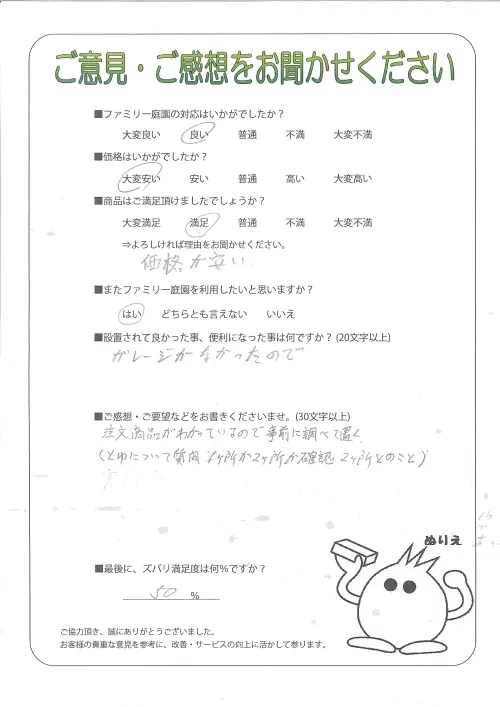 ご意見・ご感想をお聞かせください
■ファミリー庭園の対応はいかがでしたか？
大変良い 良い 普通 不満 大変不満
■価格はいかがでしたか？
大変安い 安い 普通 高い 大変高い
■商品はご満足頂けましたでしょうか？
大変満足 満足 普通 不満 大変不満
⇒よろしければ理由をお聞かせください。
価格が安い
■またファミリー庭園を利用したいと思いますか？
はい どちらとも言えない いいえ
■設置されて良かった事、便利になった事は何ですか？(20文字以上)
ガレージがなかったので
■ご感想・ご要望などをお書きくださいませ。(30文字以上)
注文商品がわかっているので事前に調べて置く
(とゆについて質問 1ヶ所か2ヶ所か確認 2ヶ所とのこと)
ぬりえ
■最後に、ズバリ満足度は何％ですか？
50 %
ご協力頂き、誠にありがとうございました。
お客様の貴重な意見を参考に、改善・サービスの向上に活かして参ります。